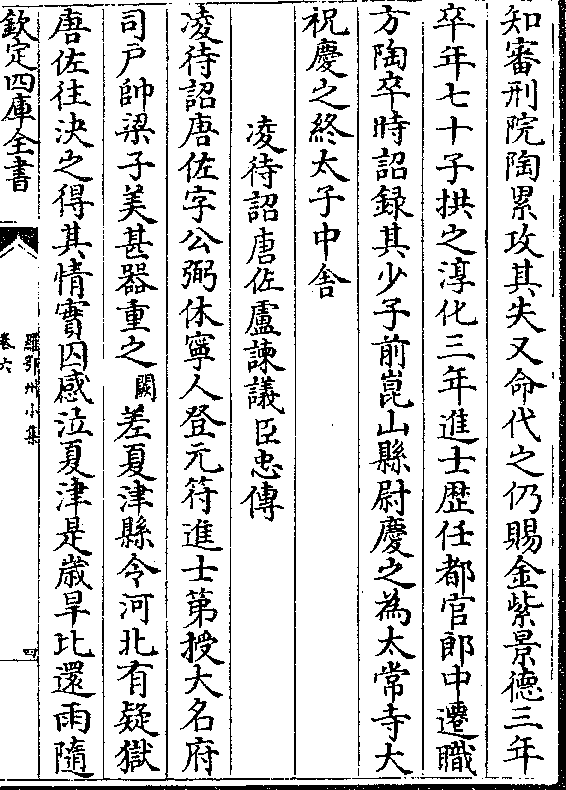 知審刑院陶累攻其失又命代之仍賜金紫景德三年
卒年七十子拱之淳化三年進士歴任都官郎中遷職
方陶卒時詔録其少子前崑山縣尉慶之為太常寺大
祝慶之終太子中舍
凌待詔唐佐盧諫議臣忠傳
凌待詔唐佐字公弼休寧人登元符進士第授大名府
司户帥梁子美甚器重之闕差夏津縣令河北有疑獄
唐佐往決之得其情實囚感泣夏津是歳旱比還雨隨
欽定四庫全書
羅鄂州小集
卷六
四